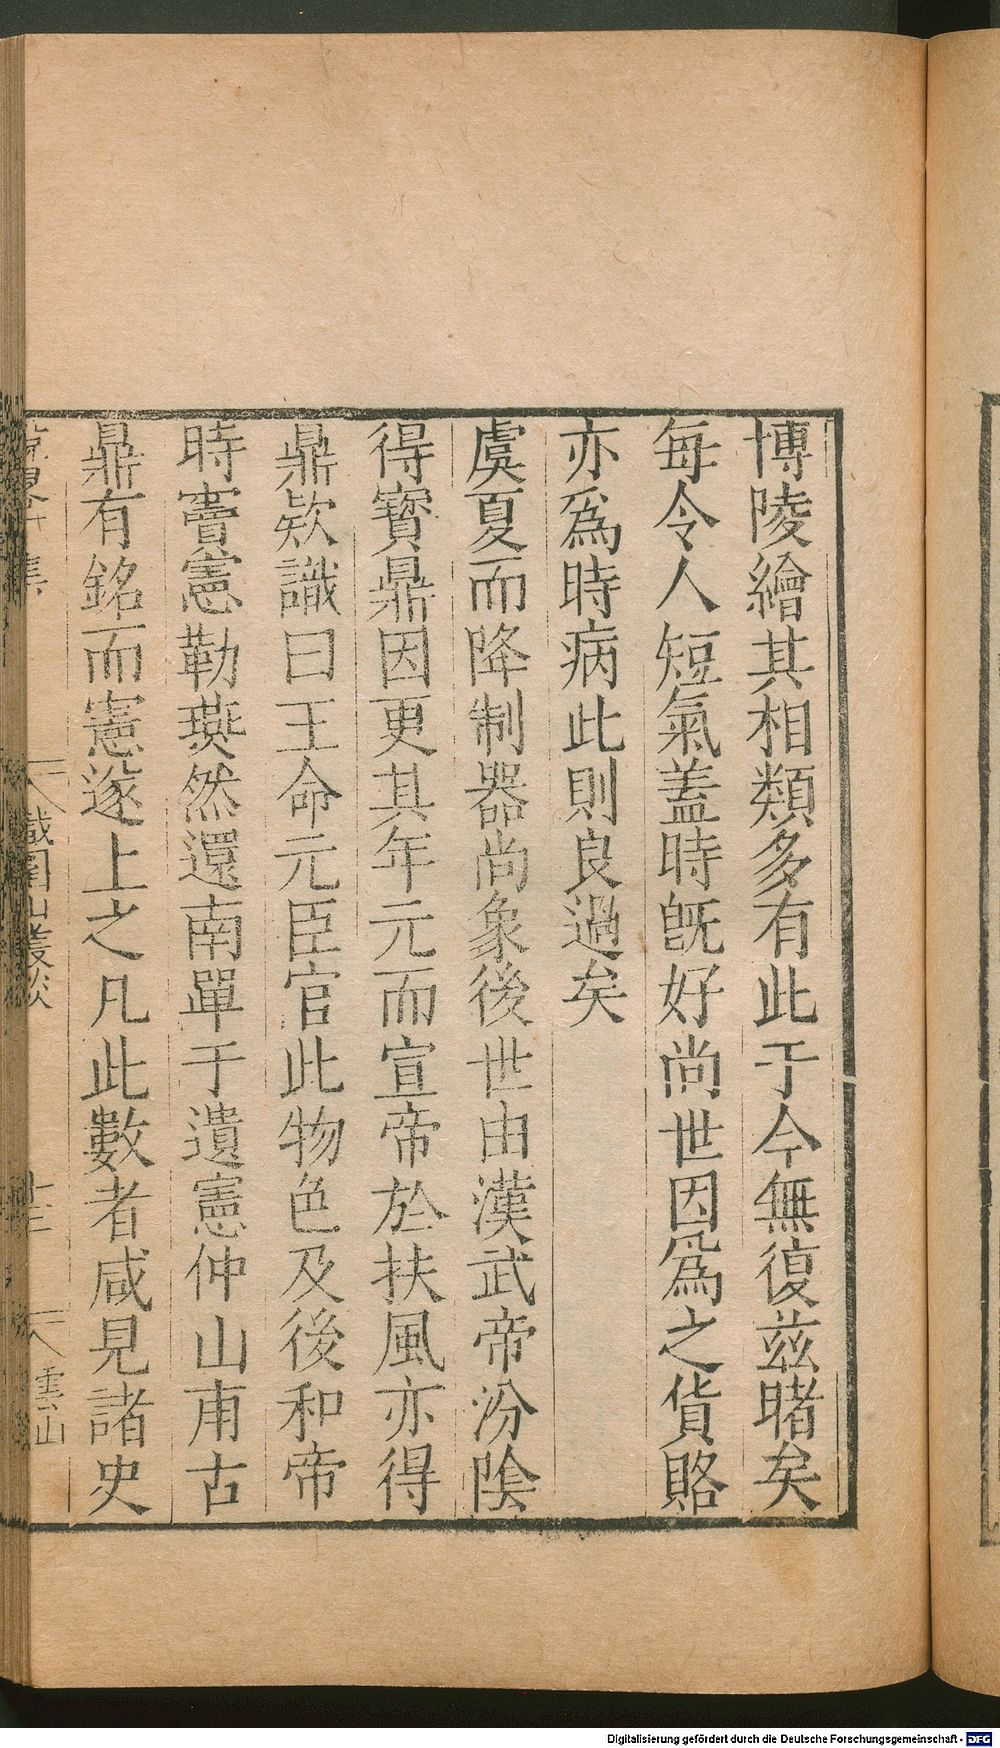 博陵繪其相類多有此于今無復茲睹矣
每令人短氣蓋時旣好尚世因爲之貨賂
亦爲時病此則良過矣
虞夏而降制器尚象後世由漢武帝汾陰
得寶鼎因更其年元而宣帝於扶風亦得
鼎欵識曰王命元臣官此物色及後和帝
時竇憲勒燕然還南單于遺憲仲山甫古
鼎有銘而憲遂上之凡此數者咸見諸史
鐵圍山叢談
十三
雲山
Digitalisierung gefördert durch die Deutsche Forschungsgemeinschaft - DFG